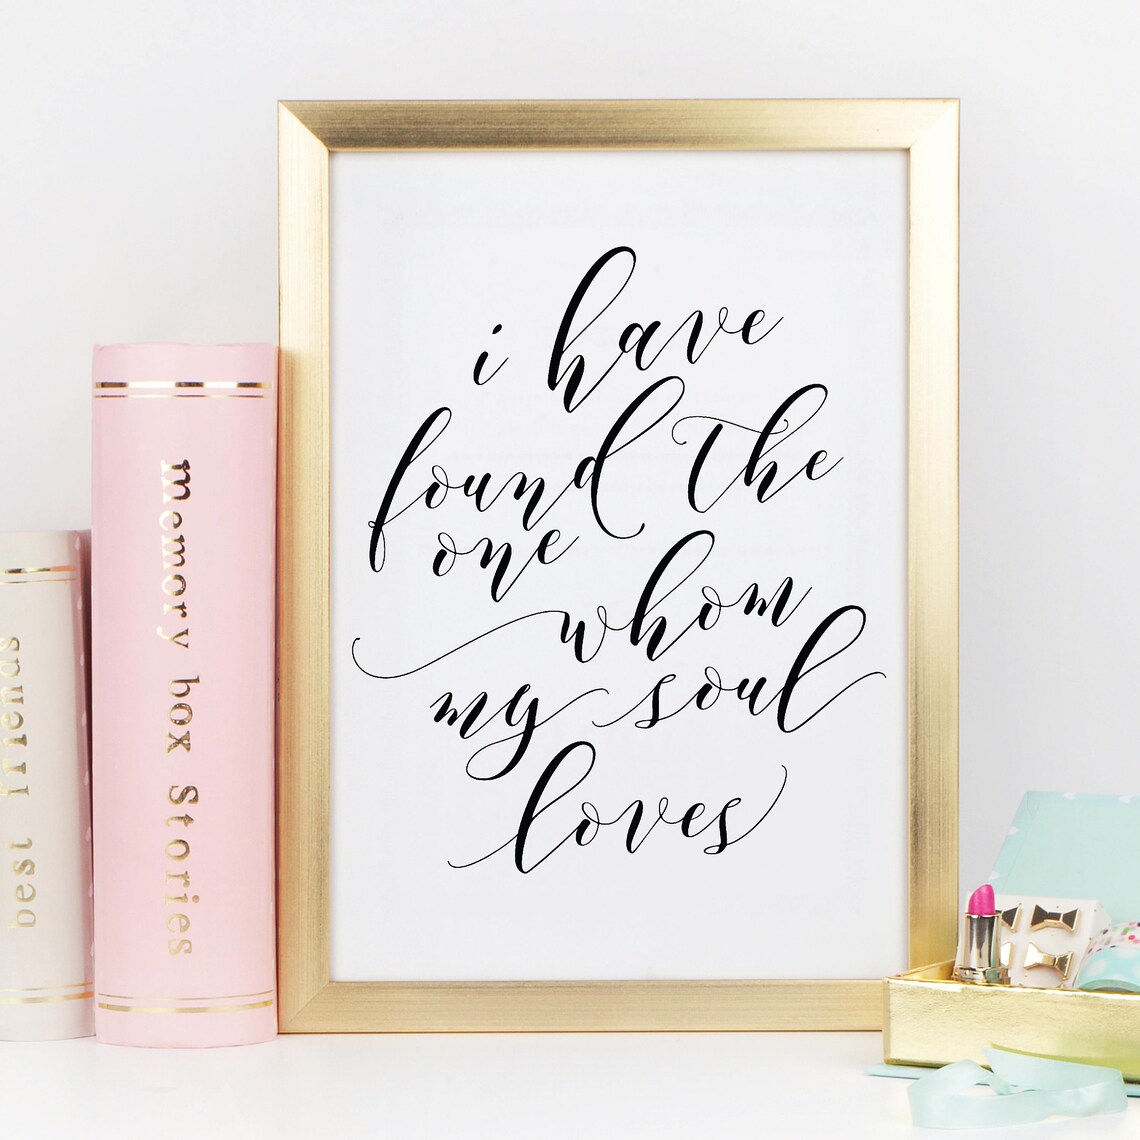 i have
found the
one
whom
my soul
loves
memory box Stories
best friends